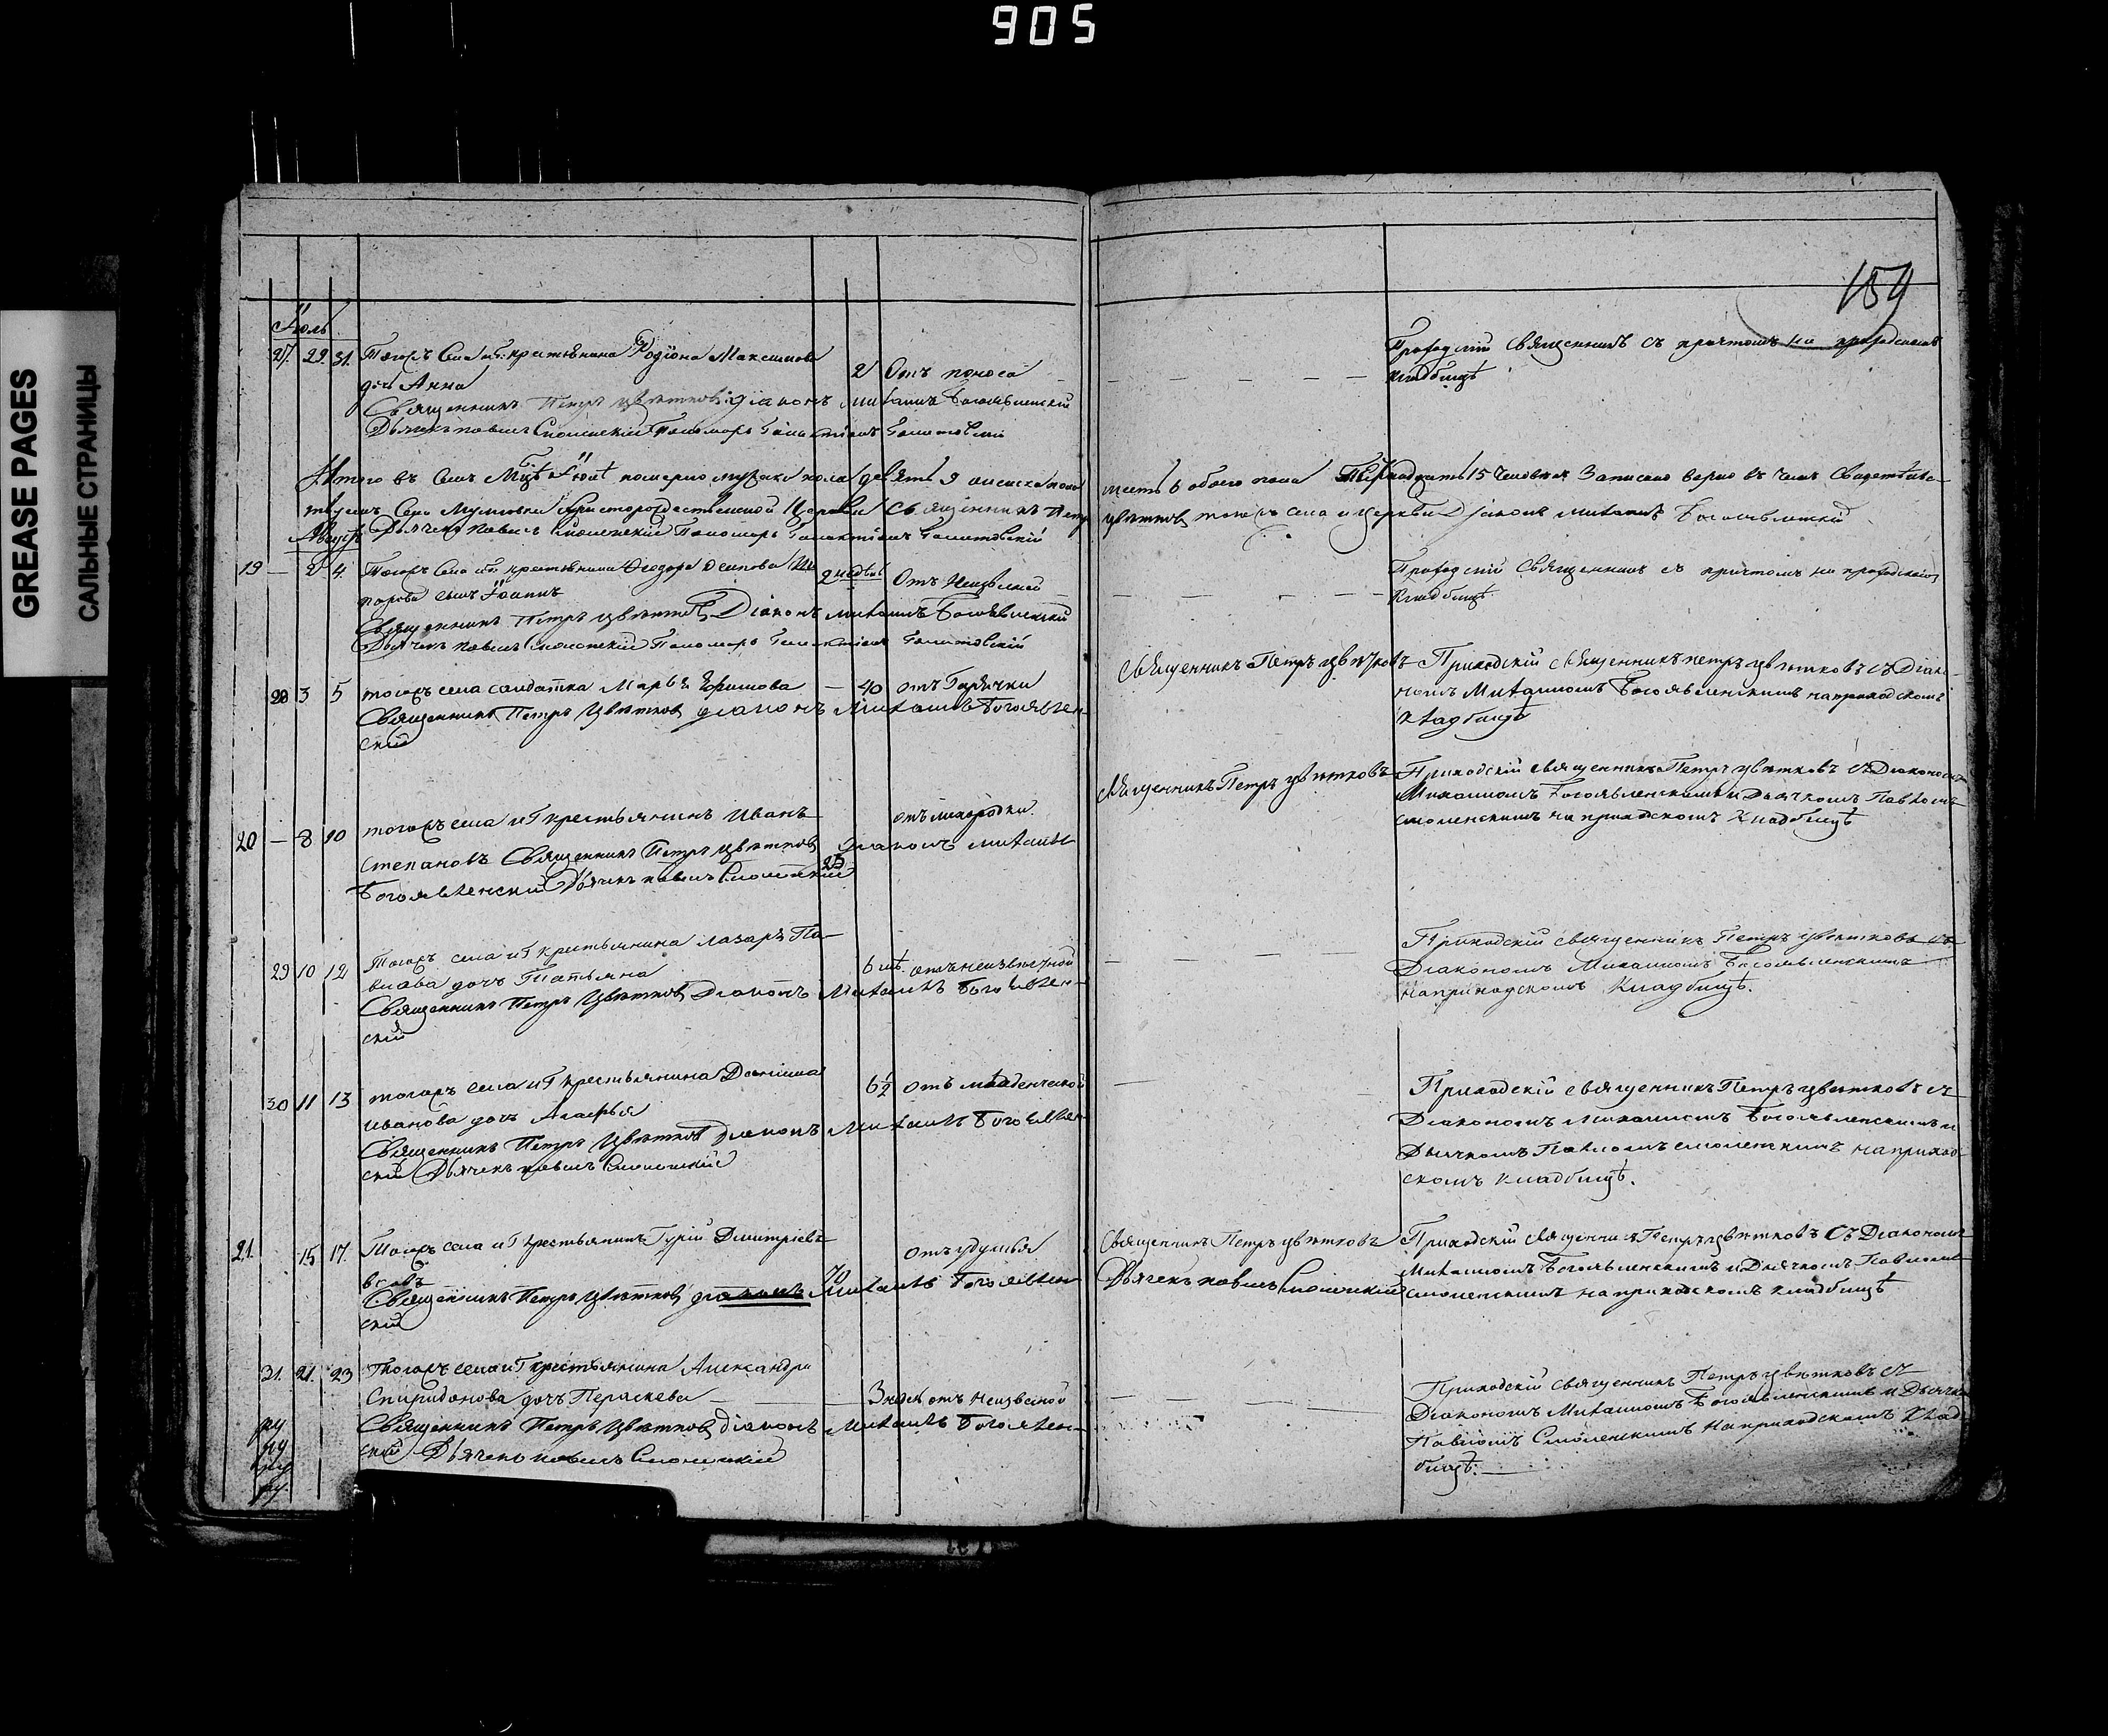 905
GREASE PAGES
САЛЬНЫЕ СТРАНИЦЫ
159
Іюль
27. 29. 31. Тогожъ села крестьянина Родіона Максимова
дочь Анна 2 Отъ поноса
Священникъ Петръ Цвѣтковъ діаконъ Михаилъ Богоявленскій
Дьячекъ Павелъ Смоленскій Пономарь
Приходскій Священникъ съ причтомъ на приходскомъ
кладбищѣ
Итого въ Іюлѣ померло мужеска пола девять 9 женска пола
шесть 6 обоего пола 15 человѣкъ Записано вѣрно въ чемъ свидѣтель-
ствуемъ Села Христорождественской Церкви Священникъ Петръ
Цвѣтковъ тогожъ села и церкви Діаконъ Михаилъ Богоявленскій
Дьячекъ Павелъ Смоленскій Пономарь
Августъ
19 — 2 4. Тогожъ села крестьянина Ѳеодора Осипова
сынъ Іоаннъ 2 недѣль Отъ Неизвѣсной
Священникъ Петръ Цвѣтковъ Діаконъ Михаилъ Богоявленскій
Дьячекъ Павелъ Смоленскій Пономарь
Приходскій Священникъ съ причтомъ на приходскомъ
Кладбищѣ
28 3 5 тогожъ села солдатка Марья Ефимова — 40 отъ Горячки
Священникъ Петръ Цвѣтковъ діаконъ Михаилъ Богоявлен-
скій
Священникъ Петръ Цвѣтковъ
Приходскій Священникъ Петръ Цвѣтковъ съ Діако-
номъ Михаиломъ Богоявленскимъ на приходскомъ
кладбищѣ
20 — 8 10 тогожъ села и Г крестьянинъ Иванъ отъ лихорадки.
Степановъ Священникъ Петръ Цвѣтковъ Діаконъ Михаилъ
25
Богоявленскій Дьячекъ Павелъ Смоленскій
Священникъ Петръ Цвѣтковъ
Приходскій священникъ Петръ Цвѣтковъ съ Діакономъ
Михаиломъ Богоявленскимъ и Дьячкомъ Павломъ
Смоленскимъ на приходскомъ Кладбищѣ
29 10 12 Тогожъ села и Г крестьянина Лазаря Па-
влова дочь Татьяна 6 лѣ. отъ неизвѣстной
Священникъ Петръ Цвѣтковъ Діаконъ Михаилъ Богоявлен-
скій
Приходскій священникъ Петръ Цвѣтковъ съ
Діакономъ Михаиломъ Богоявленскимъ
на приходскомъ Кладбищѣ.
30 11 13 тогожъ села и Г крестьянина Даніила 6½ отъ младенческой
Иванова дочь Агафья
Священникъ Петръ Цвѣтковъ діаконъ Михаилъ Богоявлен-
скій Дьячекъ Павелъ Смоленскій
Приходскій священникъ Петръ Цвѣтковъ съ
Діакономъ Михаиломъ Богоявленскимъ и
Дьячкомъ Павломъ Смоленскимъ на приход-
скомъ кладбищѣ.
21. 15 17. Тогожъ села и Г крестьянинъ Гурій Дмитріевъ
70 отъ удушья
Священникъ Петръ Цвѣтковъ діаконъ Михаилъ Богоявлен-
скій
Священникъ Петръ Цвѣтковъ
Дьячекъ Павелъ Смоленскій
Приходскій священникъ Петръ Цвѣтковъ Съ Діакономъ
Михаиломъ Богоявленскимъ и Дьячкомъ Павломъ
Смоленскимъ на приходскомъ кладбищѣ
31. 21. 23 Тогожъ села и Г крестьянина Александра
Спиридонова дочь Пераскева 3 недѣ отъ Неизвѣсной
Священникъ Петръ Цвѣтковъ діаконъ Михаилъ Богоявлен-
скій Дьячекъ Павелъ Смоленскій
Приходскій священникъ Петръ Цвѣтковъ съ
Діакономъ Михаиломъ Богоявленскимъ и Дьячко
Павломъ Смоленскимъ На приходскомъ Клад-
бищѣ.